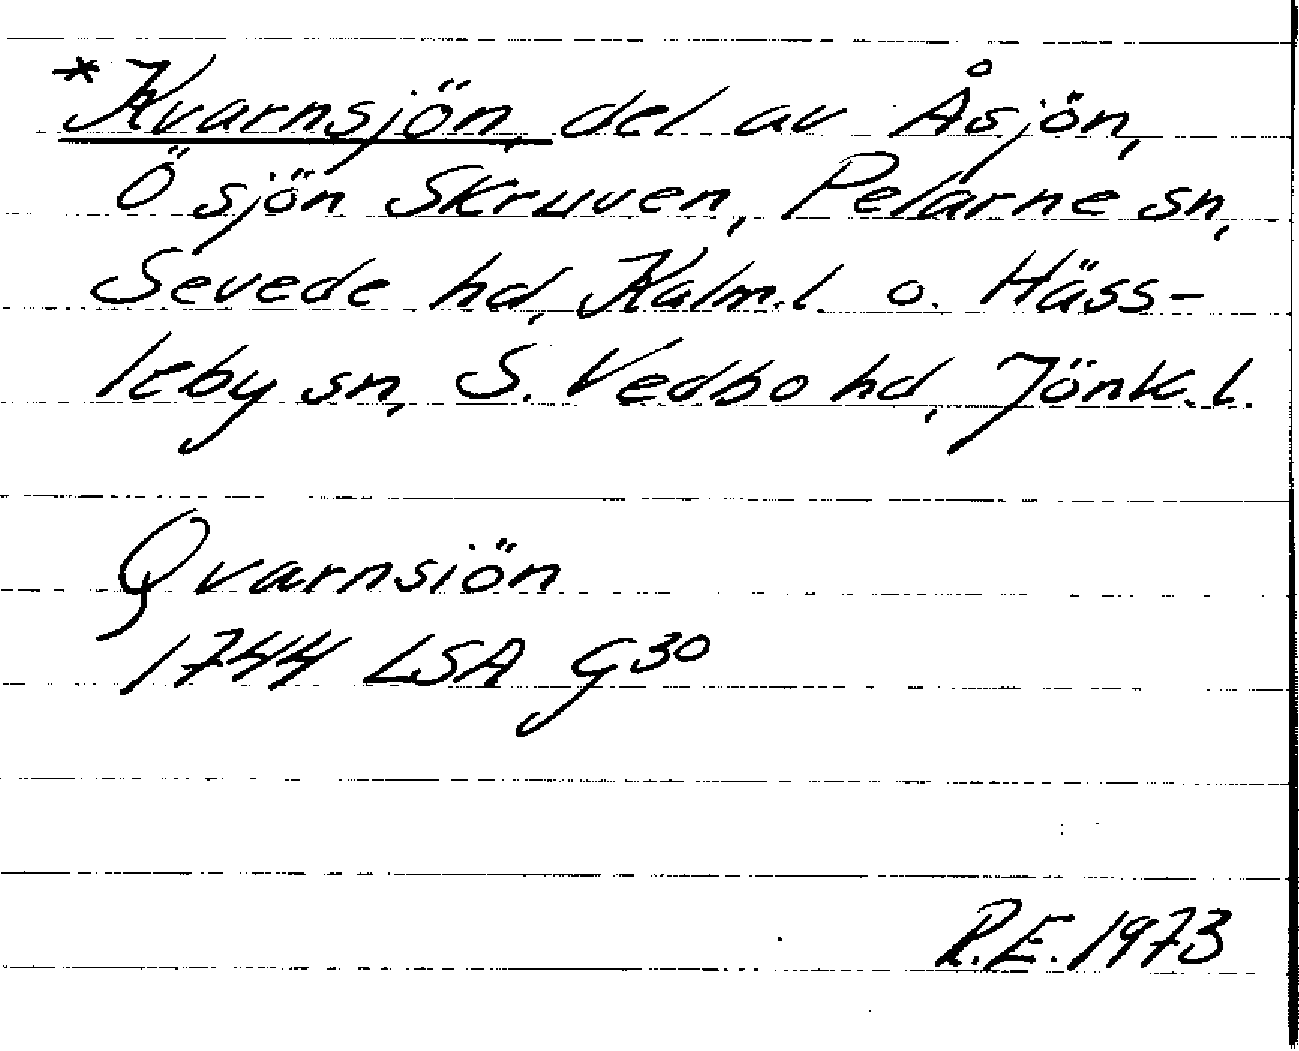 *Kvarnsjön, del av Åsjön,
Ö sjön Skruven, Pelarne sn,
Sevede hd, Kalm.l. o. Häss-
leby sn, S. Vedbo hd, Jönk.l.
Qvarnsiön
1744 LSA G30
R.E. 1973